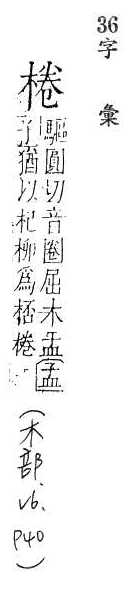 36
字彙
棬
驅圓切音圈屈木盂(孟
子猶以杞柳爲桮棬
(木部.v6.
p40)